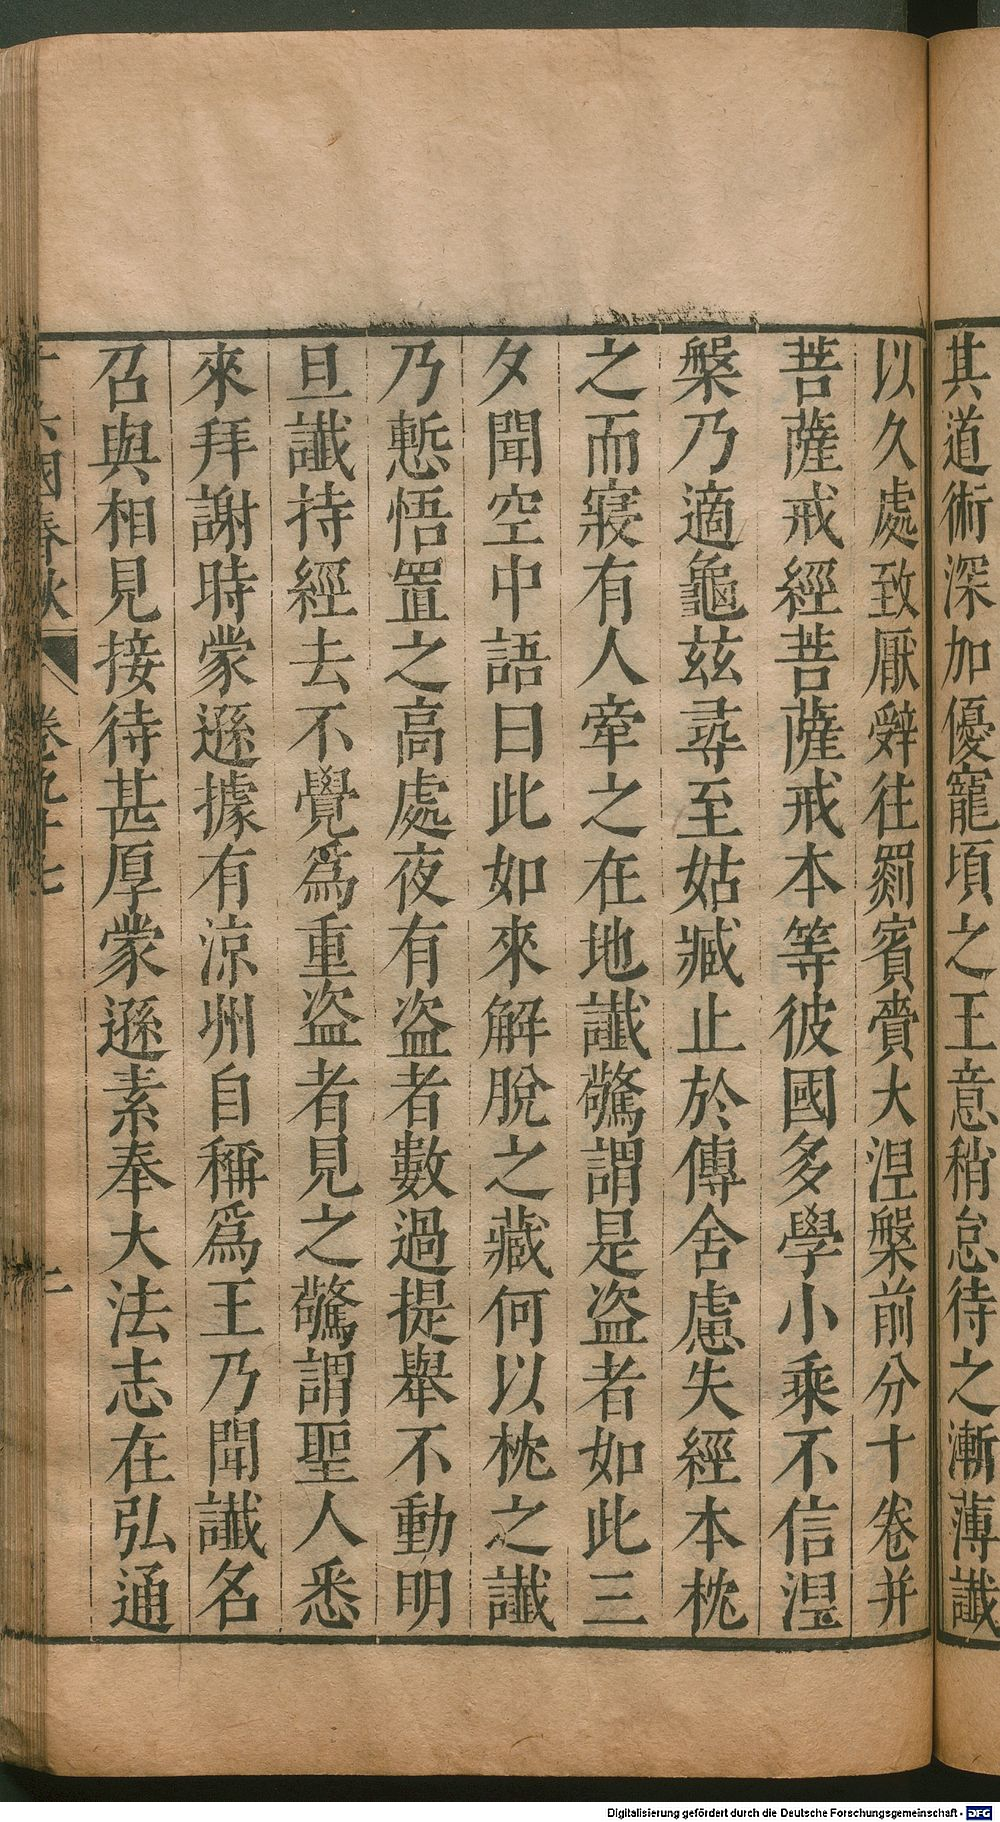 其道術深加優寵頃之王意稍怠待之漸薄讖
以久處致厭辤往罽賓賷大涅槃前分十卷并
菩薩戒經菩薩戒本等彼國多學小乘不信涅
槃乃適龜茲尋至姑臧止於傳舍慮失經本枕
之而寢有人牽之在地讖驚謂是盜者如此三
夕聞空中語曰此如來解脫之藏何以枕之讖
乃慙悟置之高處夜有盜者數過提舉不動明
旦讖持經去不覺爲重盜者見之驚謂聖人悉
來拜謝時蒙遜據有涼州自稱爲王乃聞讖名
召與相見接待甚厚蒙遜素奉大法志在弘通
十六國春秋 卷九十七
Digitalisierung gefördert durch die Deutsche Forschungsgemeinschaft - DFG